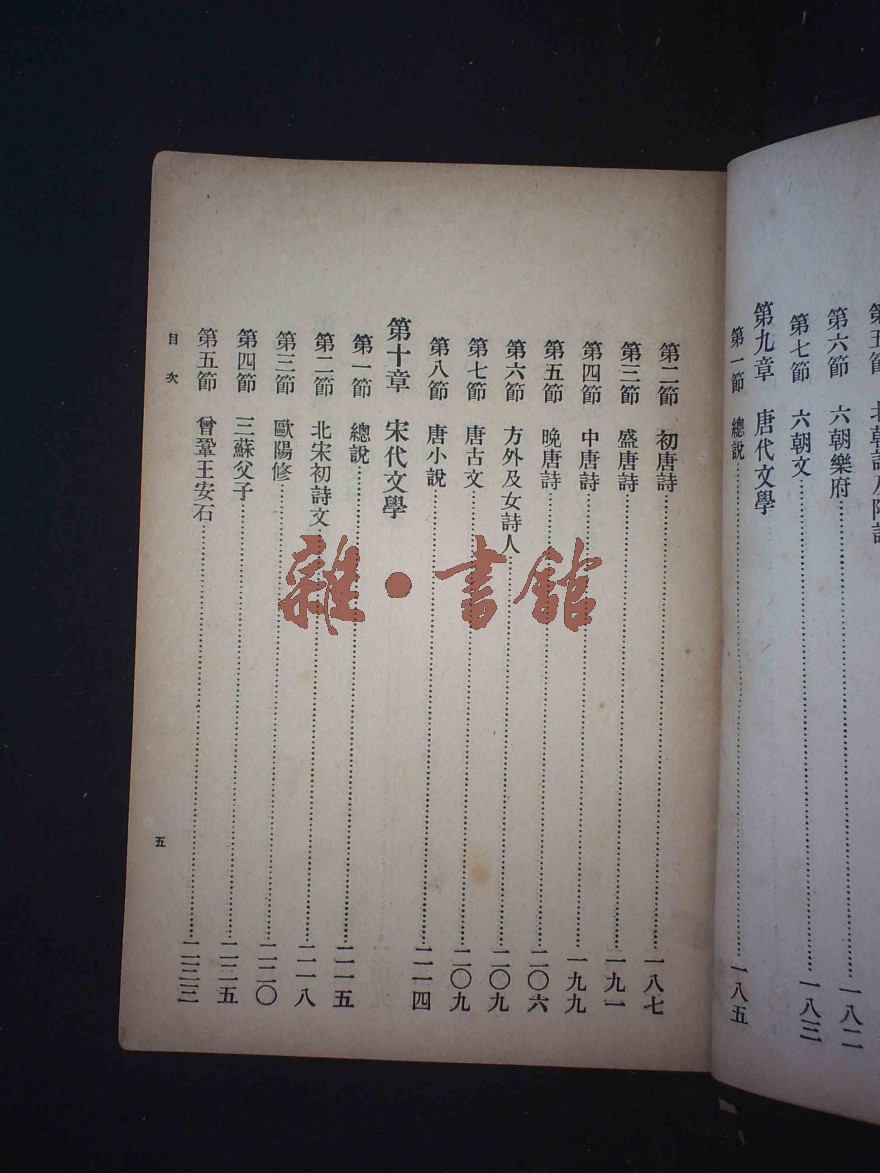 第五節 北朝詩及隋詩
第六節 六朝樂府……一八二
第七節 六朝文……一八三
第九章 唐代文學
第一節 總說……一八五
第二節 初唐詩……一八七
第三節 盛唐詩……一九一
第四節 中唐詩……一九九
第五節 晚唐詩……二〇六
第六節 方外及女詩人……二〇九
第七節 唐古文……二〇九
第八節 唐小說……二一四
第十章 宋代文學
第一節 總說……二一五
第二節 北宋初詩文……二一八
第三節 歐陽修……二二〇
第四節 三蘇父子……二二五
第五節 曾鞏王安石……二三三
目次
五
雜·書館